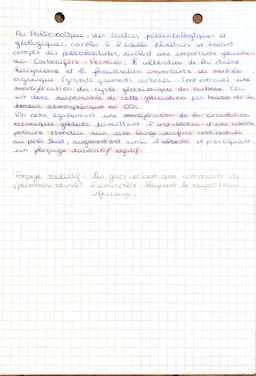 Au Paléozoïque, des indices paléontologiques et
géologiques, corrélés à l'échelle planétaire et tenant
compte des paléolatitudes, révèlent une importante glaciation
au Carbonifère-Permien. L'altération de la chaîne
hercynienne et la fossilisation importante de matière
organique (grands gisements carbonés) ont entraîné une
modification du cycle géochimique du carbone. Ceci
est donc responsable de cette glaciation par baisse de la
teneur atmosphérique en CO2.
On note également une modification de la circulation
océanique globale permettant l'installation d'une calotte
polaire étendue sur une large surface continentale
au pôle Sud, augmentant ainsi l'albédo et provoquant
un forçage radiatif négatif.
Forçage radiatif : composante
l'atmosphère